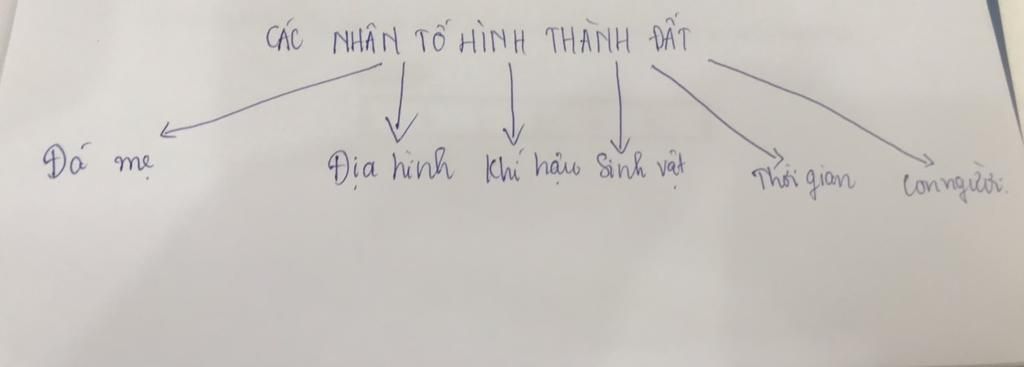 CÁC NHÂN TỐ HÌNH THÀNH ĐẤT
Đá mẹ Địa hình Khí hậu Sinh vật Thời gian Con người.